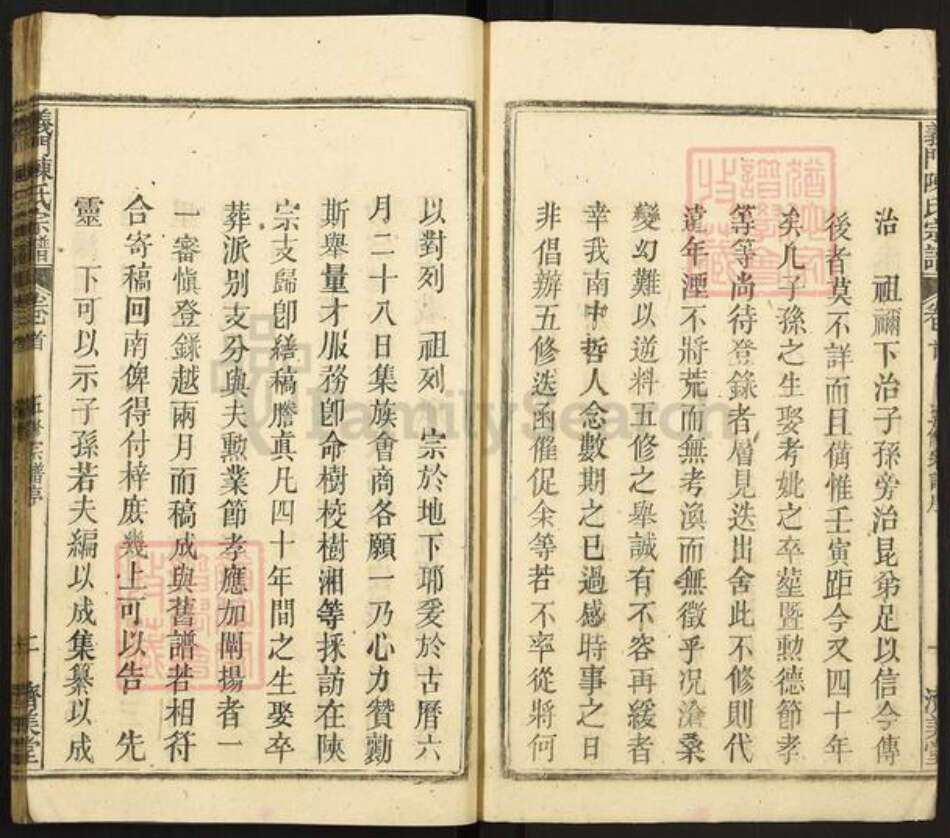 義門陳氏宗譜
卷首
五修宗譜序
一
濟美堂
治　祖禰下治子孫旁治昆弟足以信今傳
後者莫不詳而且備惟壬寅距今又四十年
矣凡子孫之生娶考妣之卒塟暨勲德節孝
等等尚待登錄者層見迭出舍此不修則代
遠年湮不將荒而無考渙而無徵乎况滄桑
變幻難以逆料五修之舉誠有不容再緩者
幸我南中哲人念數期之已過感時事之日
非倡辦五修迭函催促余等若不率從將何
以對列　祖列　宗於地下耶爰於古曆六
月二十八日集族會商各願一乃心力贊勷
斯舉量才服務卽命樹校樹湘等採訪在陝
宗支歸卽繕稿謄真凡四十年間之生娶卒
葬派别支分與夫勲業節孝應加闡揚者一
一審愼登錄越兩月而稿成與舊譜若相符
合寄稿回南俾得付梓庶幾上可以告　先
靈　下可以示子孫若夫編以成集纂以成
義門陳氏宗譜
卷首
五修宗譜序
二
濟美堂
FamilySearch